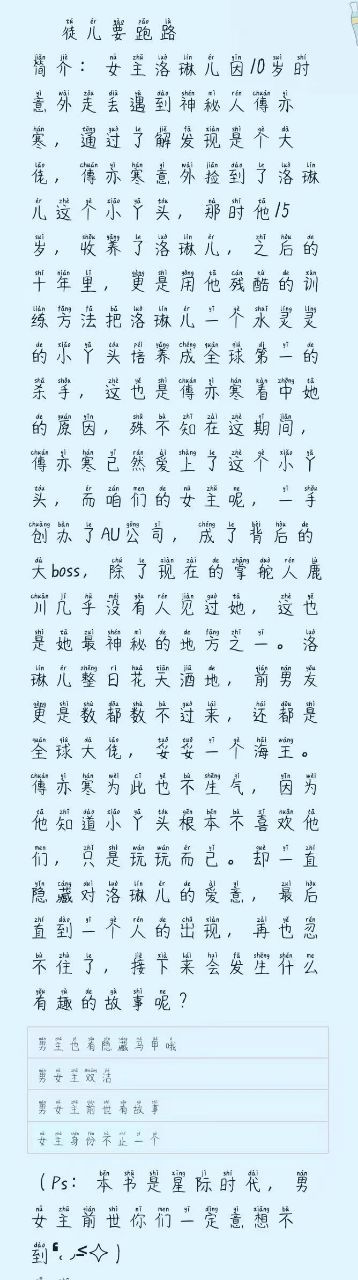 徒儿要跑路
简介：女主洛琳儿因10岁时
意外走丢遇到神秘人傅亦
寒，通过了解发现是个大
佬，傅亦寒意外捡到了洛琳
儿这个小丫头，那时他15
岁，收养了洛琳儿，之后的
十年里，更是用他残酷的训
练方法把洛琳儿一个水灵灵
的小丫头培养成全球第一的
杀手，这也是傅亦寒看中她
的原因，殊不知在这期间，
傅亦寒已然爱上了这个小丫
头，而咱们的女主呢，一手
创办了AU公司，成了背后的
大boss，除了现在的掌舵人鹿
川几乎没有人见过她，这也
是她最神秘的地方之一。洛
琳儿整日花天酒地，前男友
更是数都数不过来，还都是
全球大佬，妥妥一个海王。
傅亦寒为此也不生气，因为
他知道小丫头根本不喜欢他
们，只是玩玩而已。却一直
隐藏对洛琳儿的爱意，最后
直到一个人的出现，再也忍
不住了，接下来会发生什么
有趣的故事呢？
男主也有隐藏马甲哦
男女主双洁
男女主前世有故事
女主身份不止一个
（Ps：本书是星际时代，男
女主前世你们一定意想不
到❛˓◞˂̵✧）